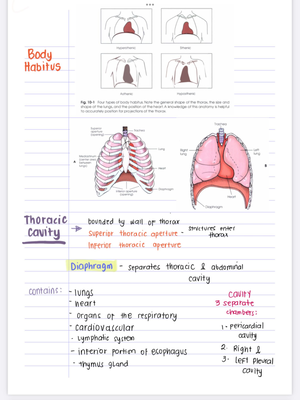 Body
Habitus
Hypersthenic
Sthenic
Asthenic
Hyposthenic
Fig. 10-1 Four types of body habitus. Note the general shape of the thorax, the size and
shape of the lungs, and the position of the heart. A knowledge of the anatomy is helpful
to accurately position for projections of the thorax.
Trachea
Lung
Heart
Diaphragm
A
Trachea
Right
lung
Left
lung
Heart
Diaphragm
B
Thoracic
Cavity
bounded by wall of thorax
Superior thoracic aperture - structures enter
thorax
Inferior thoracic aperture
Diaphragm - separates thoracic & abdominal
cavity
contains: - lungs
- heart
- organs of the respiratory
- cardiovascular
- lymphatic system
- inferior portion of esophagus
- thymus gland
cavity
3 separate
chambers:
1 - pericardial
cavity
2. Right &
3 - left pleural
cavity